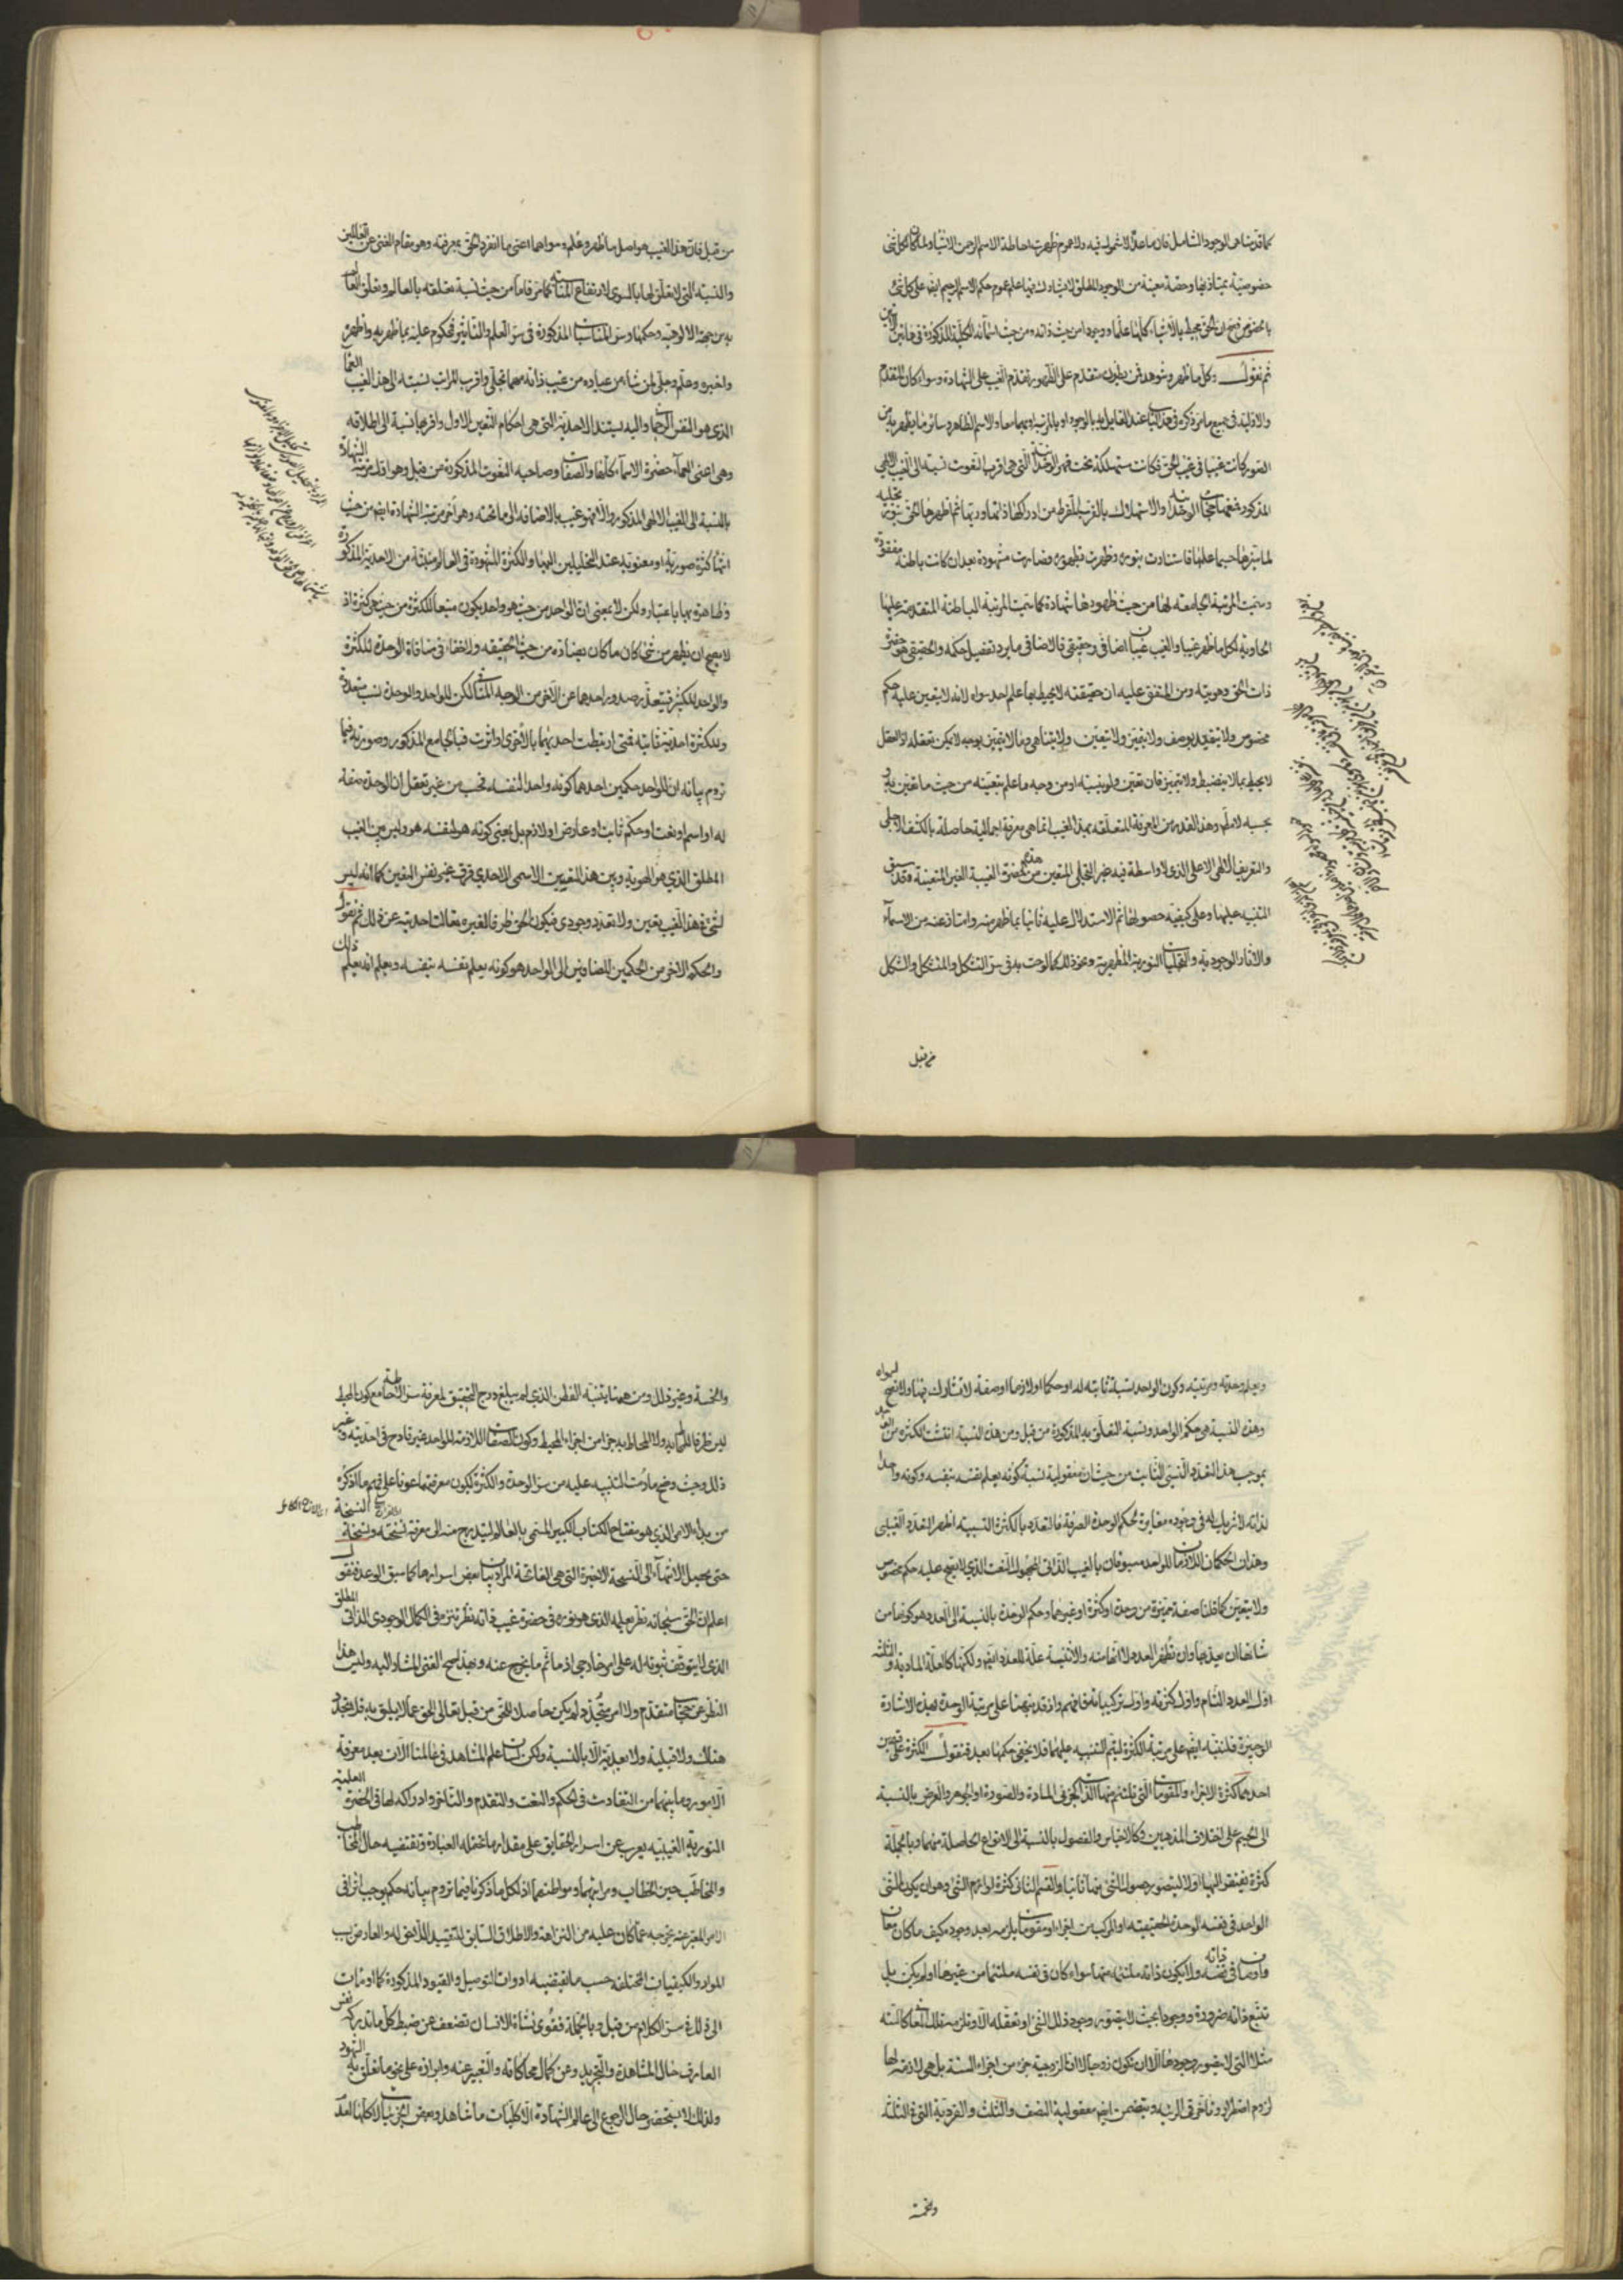 كما قدمنا هي الوجود الشامل فان ما عداه لا شمول فيه ولا عموم فظهرت احاطة الاسم الرحمن الاشياء ولما كان لكل شئ
خصوصية يمتاز بها وحصة معينة من الوجود المطلق لا يشارك فيها علم عموم حكم الاسم الرحيم ايضا على كل شئ
بالخصوص فصح ان الحق محيط بالاشياء كلها علما ووجودا من حيث ذاته ومن حيث اسمائه الكلية المذكورة في هاتين
ثم نقول وكل ما ظهر وشوهد فمن بطون متقدم على الظهور تقدم الغيب على الشهادة وسواء كان التقدم
والاولية في جميع ما مر ذكره في هذا الباب عند القايل به بالوجود او بالمرتبة او بهما معا والاسم الظاهر وسائر ما ظهر به من
الصور كانت غيبا في غيب الحق فكانت مستهلكة تحت قهر الوحدانية التي هي اقرب النعوت نسبة الى الغيب الالهي
المذكور فمنعها حجاب الوحدانية والاستهلاك بالقرب المفرط من ادراكها ذاتها وربها ثم اظهرها الحق بنور تجليه
لما ميزها حسبما علمها فاستنارت بنوره وظهرت بظهوره فصارت مشهودة بعد ان كانت باطنة مفقودة
وسميت المرتبة الجامعة لها من حيث ظهورها شهادة كما سميت المرتبة الباطنة المتقدمة عليها
الحاوية لكل ما ظهر غيبا والغيب غيبان اضافي وحقيقي فالاضافي ما يرد تفصيل حكمه والحقيقي هو حضرة
ذات الحق وهويته ومن المتفق عليه ان حقيقته لا يحيط بها علم احد سواه لانه لا يتعين عليه حكم
مخصوص ولا يتقيد بوصف ولا يتميز ولا يتعين ولا يتناهى وما لا يتميز بوجه لا يمكن تعقله اذ العقل
لا يحيط بما لا ينضبط ولا يتميز فان تعين ولو بنسبة او من وجه ما علم بتعينه من حيث ما تعين به و
بحسبه لا مطلقا وهذا القدر من المعرفة المتعلقة بهذا الغيب انما هي معرفة اجمالية حاصلة بالكشف الاجلى
والتعريف الالهي الاعلى الذي لا واسطة فيه غير التجلي المتعين من هذه الحضرة الغيبية الغير المتعينة وقد سبق
التنبيه عليها وعلى كيفية حصولها ثم الاستدلال عليه ثانيا بما ظهر منه وامتاز عنه من الاسماء
والاثار الوجودية والتجليات النورية المظهرية ونحو ذلك كما لوحت به في سر التشكل والمتشكل والشكل
من قبل
من قبل فان هذا الغيب هو اصل ما ظهر وعلم وسواهما اعني ما انفرد الحق بمعرفته وهو مقام الغنى عن العالمين
والنسبة التي لا تعلق لها بالسوى لارتفاع المناسبة كما مر فاما من حيث نسبة تعلقه بالعالم وتعلق العالم
به من جهة الالوهية وحكمها وسر المناسبات المذكورة في سر العلم والتأثير فمحكوم عليه بما ظهر به واظهر
واخبر وعلم وجلى لمن شاء من عباده من غيب ذاته مهما تجلى واقرب المراتب نسبة الى هذا الغيب العماء
الذي هو النفس الرحماني واليه يستند الاحدية التي هي احكام التعين الاول واقربها نسبة الى اطلاقه
وهي اعني العماء حضرة الاسماء كلها والصفات وصاحبه النعوت المذكورة من قبل وهو اول مرتبة الشهادة
بالنسبة الى الغيب الالهي المذكور والا فهو غيب بالاضافة الى ما تحته وهو آخر مرتبة الشهادة ايضا من حيث
انتهاء كثرة صورية او معنوية عند التحليل اليها والكثرة المشهودة في العالم منبثة من الاحدية المذكورة
وظاهرة بها باعتبار ولكن لا بمعنى ان الواحد من حيث هو واحد يكون منبعا للكثرة من حيث هي كثرة اذ
لا يصح ان يظهر من شئ كان ما كان بضاده من حيث الحقيقة ولا خفاء في منافاة الوحدة للكثرة
والواحد للكثير فيتعذر صدور احدهما عن الآخر من الوجه المنافي لكن للواحد والوحدة نسب متعددة
وللكثرة احدية ثابتة فمتى ارتبطت احديهما بالاخرى او اثرت فبالجامع المذكور وصورته فيما
نروم بيانه ان للواحد حكمين احدهما كونه واحدا لنفسه فحسب من غير تعقل ان الوحدة صفة
له او اسم او نعت او حكم ثابت او عارض او لازم بل بمعنى كونه هو لنفسه هو وليس بين الغيب
المطلق الذي هو الهوية وبين هذا التعين الاسمى الاحدي فرق غير نفس التعين كما انه ليس
لشئ في هذا الغيب تعين ولا تعدد وجودي فيكون الحق ظرفا لغيره تعالت احديته عن ذلك ثم نقول
والحكم الآخر من الحكمين المضافين الى الواحد هو كونه يعلم نفسه بنفسه ويعلم انه يعلم ذلك
ويعلم وحدته ومرتبته وكون الواحد نسبة ثابتة له او حكما او لازما او صفة لا يشارك فيها ولا تصح لسواه
وهذه النسبة هي حكم الواحد ونسبة التعلق به المذكورة من قبل ومن هذه النسبة انتشت الكثرة من الواحد
بموجب هذا التعدد النسبي الثابت من حيث ان معقولية نسبة كونه يعلم نفسه بنفسه وكونه واحدا
لذاته لا شريك له في وجوده مغايرة لحكم الوحدة الصرفة فالتعدد بالكثرة النسبية اظهر التعدد العيني
وهذان الحكمان اللازمان للواحد مسبوقان بالغيب الذاتي المجهول النعت الذي لا يصح عليه حكم مخصوص
ولا يتعين كما قلنا صفة مميزة من وحدة او كثرة او غيرهما وحكم الوحدة بالنسبة الى العدد هو كونها من
شانها ان يعد بها وان تظهر العدد لا انها منه والاثنينية علة للعدد ايضا ولكنها كالعلة المادية والثلاثة
اول العدد التام واول كثرته واول تركيباته فافهم واذ قد نبهنا على مرتبة الوحدة بهذه الاشارة
الوجيزة فلننبه ايضا على مرتبة الكثرة ليتم التنبيه عليهما فلا يخفى حكمها بعد فنقول الكثرة على قسمين
احدهما كثرة الاجزاء والمقومات التي تلتئم منها الذات كجزئي المادة والصورة او الجوهر والعرض بالنسبة
الى الجسم على اختلاف المذهبين وكالاجناس والفصول بالنسبة الى الانواع الحاصلة منهما وبالجملة
كثرة يفتقر اليها اولا ليتصور حصول الشئ منها ثانيا والقسم الثاني كثرة لوازم الشئ وهو ان يكون للشئ
الواحد في نفسه الوحدة الحقيقية او المركب من اجزاء او مقومات يلزمه بعد وجوده كيف ما كان معان
واوصاف في نفسه ولا يكون ذاته ملتئمة منها سواء كان في نفسه ملتئما من غيرها او لم يكن بل
تتبع ذاته ضرورة ووجودا بحيث لا يتصور وجود ذلك الشئ او تعقله الا وتلزمه تلك المعاني كالستة
مثلا التي لا يتصور وجودها الا ان تكون زوجا لا ان الزوجية جزء من اجزاء الستة بل هي لازمة لها
لزوم اضطرار وتأخر في الرتبة وتتضمن ايضا معقولية النصف والثلث والفردية التي في الثلثة
والخمسة
والخمسة وغير ذلك ومن هنا يتنبه الفطن الذي لم يبلغ درج التحقيق لمعرفة سر الاحاطة مع كون المحيط
ليس ظرفا للمحاط به ولا المحاط به جزء من اجزاء المحيط وكون الصفات اللازمة للواحد غير قادح في احديته وغير
ذلك وحيث وضح ما رمت التنبيه عليه من سر الوحدة والكثرة ليكون معرفتهما عونا على فهم ما اذكره
من بدء الامر الذي هو مفتاح الكتاب الكبير المسمى بالعالم ليتدرج منه الى معرفة نسخته ونسخة النسخة
حتى يحصل الانتهاء الى النسخة الاخيرة التي هي الفاتحة المراد بيان بعض اسرارها كما سبق الوعد فنقول
اعلم ان الحق سبحانه نظر بعلمه الذي هو نوره في حضرة غيب ذاته نظر تنزه في الكمال الوجودي الذاتي المطلق
الذي لا يتوقف ثبوته له على امر خارجي اذ ما ثم ما يخرج عنه وبهذا صح الغنى المشار اليه وليس هذا
النظر عن حجاب متقدم ولا امر متجدد لم يكن حاصلا للحق من قبل تعالى الحق عما لا يليق به فلا تجدد
هناك ولا قبلية ولا بعدية الا بالنسبة ولكن لسان علم المشاهد في عالمنا الآن بعد معرفة
الامور وما بينها من التفاوت في الحكم والنعت والتقدم والتأخر وادراكه لها في الحضرة العلمية
النورية الغيبية يعرب عن اسرار الحقايق على مقدار ما تحتمله العبارة وتقتضيه حال المخاطب
والمخاطب حين الخطاب ومراتبهما ومواطنهما اذ لكل ما ذكرنا فيما نروم بيانه حكم يوجب اثرا في
الامر المعبر عنه يخرجه عما كان عليه من النزاهة والاطلاق السابق للتقييد اللاحق له والعارض بسبب
المواد والكيفيات المختلفة حسب ما يقتضيه ادوات التوصيل والقيود المذكورة كما اومأت
الى ذلك في سر الكلام من قبل وبالجملة فقوى نشاة الانسان تضعف عن ضبط كل ما تدركه نفس
العارف حال المشاهدة والتجريد وعن كمال محاكاته والتعبير عنه وابرازه على نحو ما تعلق به الشهود
ولذلك لا يستحضر حال الرجوع الى عالم الشهادة الا كليات ما شاهد وبعض الجزئيات لا كلها لعدم